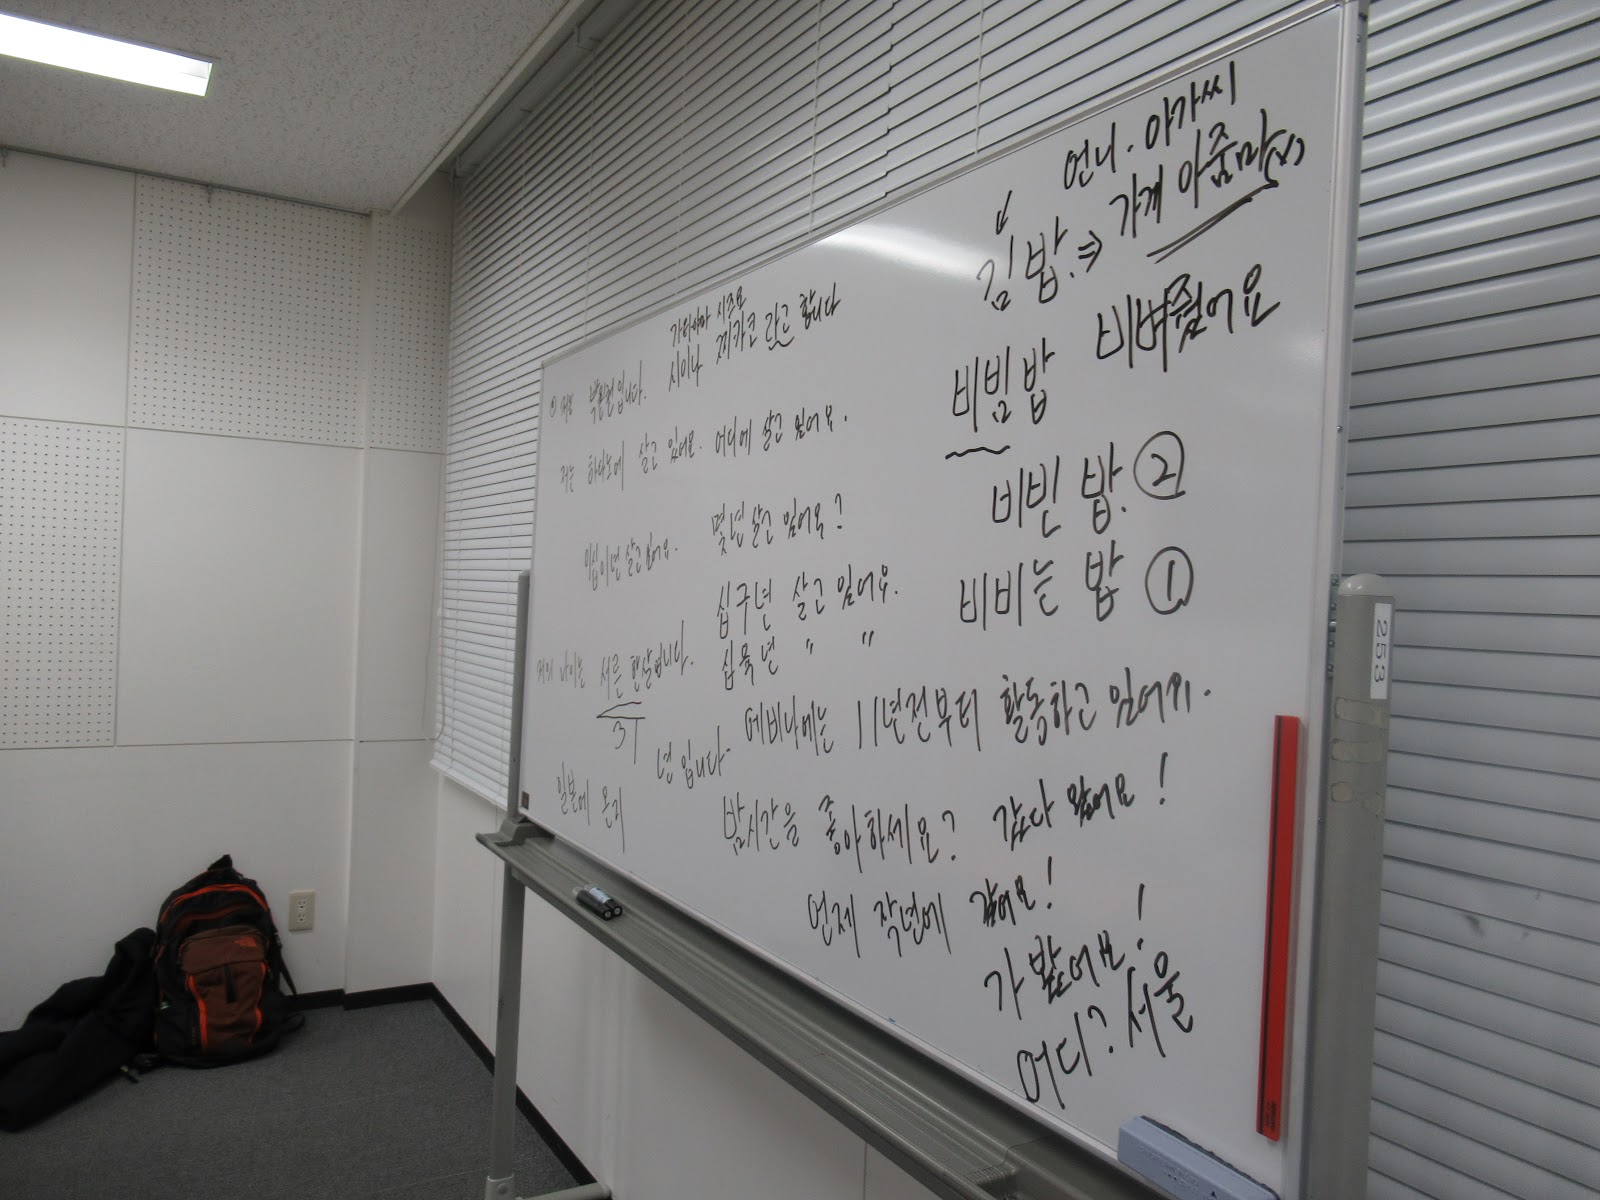 언니. 아가씨
김밥. ⇒ 가게 아줌마(x)
비빔밥 비벼줬어요
비빈 밥. ②
비비는 밥 ①
시이나 라고 합니다
저는 하다노에 살고 있어요. 어디에 살고 있어요.
이십이년 살고 있어요. 몇년 살고 있어요?
십구년 살고 있어요.
십육년 〃 〃
저의 나이는 서른 한살입니다.
31
년 입니다. 에비나에는 11년전부터 활동하고 있어
일본에 온지
밤시간을 좋아하세요? 갔다 왔어요!
언제 작년에 갔어요!
가 봤어요!
어디? 서울
253